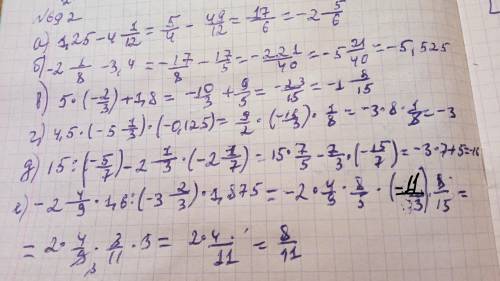 №692
а) 1,25 - 4 1/12 = 5/4 - 49/12 = 17/6 = -2 5/6
б) -2 1/8 - 3,4 = -17/8 - 17/5 = -221/40 = -5 21/40 = -5,525
в) 5 · (-2/3) + 1,8 = -10/3 + 9/5 = -23/15 = -1 8/15
г) 4,5 · (-5 1/3) · (-0,125) = 9/2 · (-16/3) · 1/8 = -3 · 8 · 1/8 = -3
д) 15 : (-5/7) - 2 1/3 · (-2 1/7) = 15 · 7/5 - 7/3 · (-15/7) = -3 · 7 + 5 = -16
е) -2 4/9 · 1,6 : (-3 2/3) · 1,875 = -2 · 4/9 · 8/5 · (-11/33) · 8/15 =
= 2 · 4/9 · 3/11 · 3 = 2 · 4/11 = 8/11